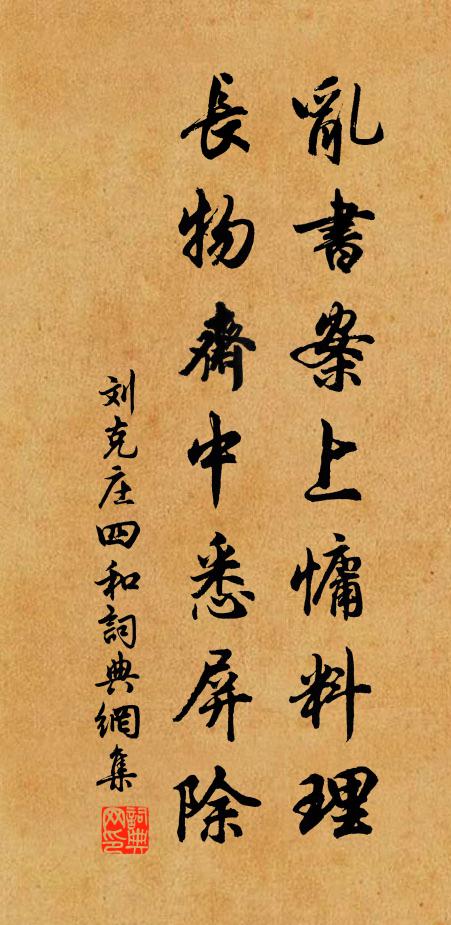 亂書案上慵料理
長物齋中悉屏除
刘克庄四和詞典網集
詞典网印